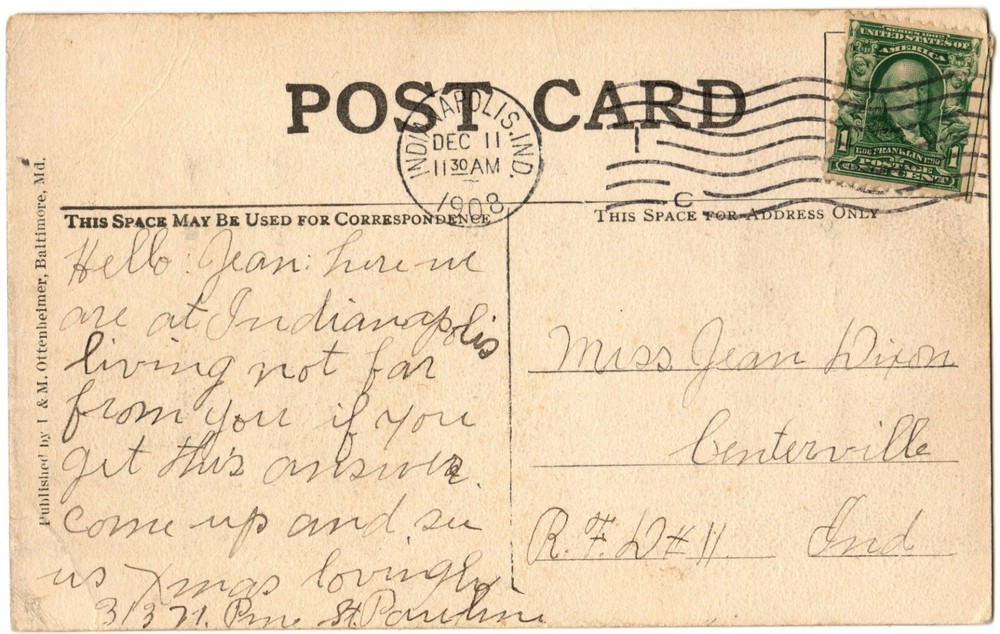 SERIES 1902
UNITED STATES OF
AMERICA
1 1706 FRANKLIN 1790 1
POSTAGE
ONE CENT
POST CARD
INDIANAPOLIS, IND.
DEC 11
11 30 AM
1908
C
THIS SPACE MAY BE USED FOR CORRESPONDENCE
THIS SPACE FOR ADDRESS ONLY
Published by I & M. Ottenheimer, Baltimore, Md.
Hello: Jean: here we
are at Indianapolis
living not far
from you if you
get this answer.
come up and see
us Xmas lovingly
313 N. Pine St. Pauline
Miss Jean Dixon
Centerville
R. F. D # 11. Ind